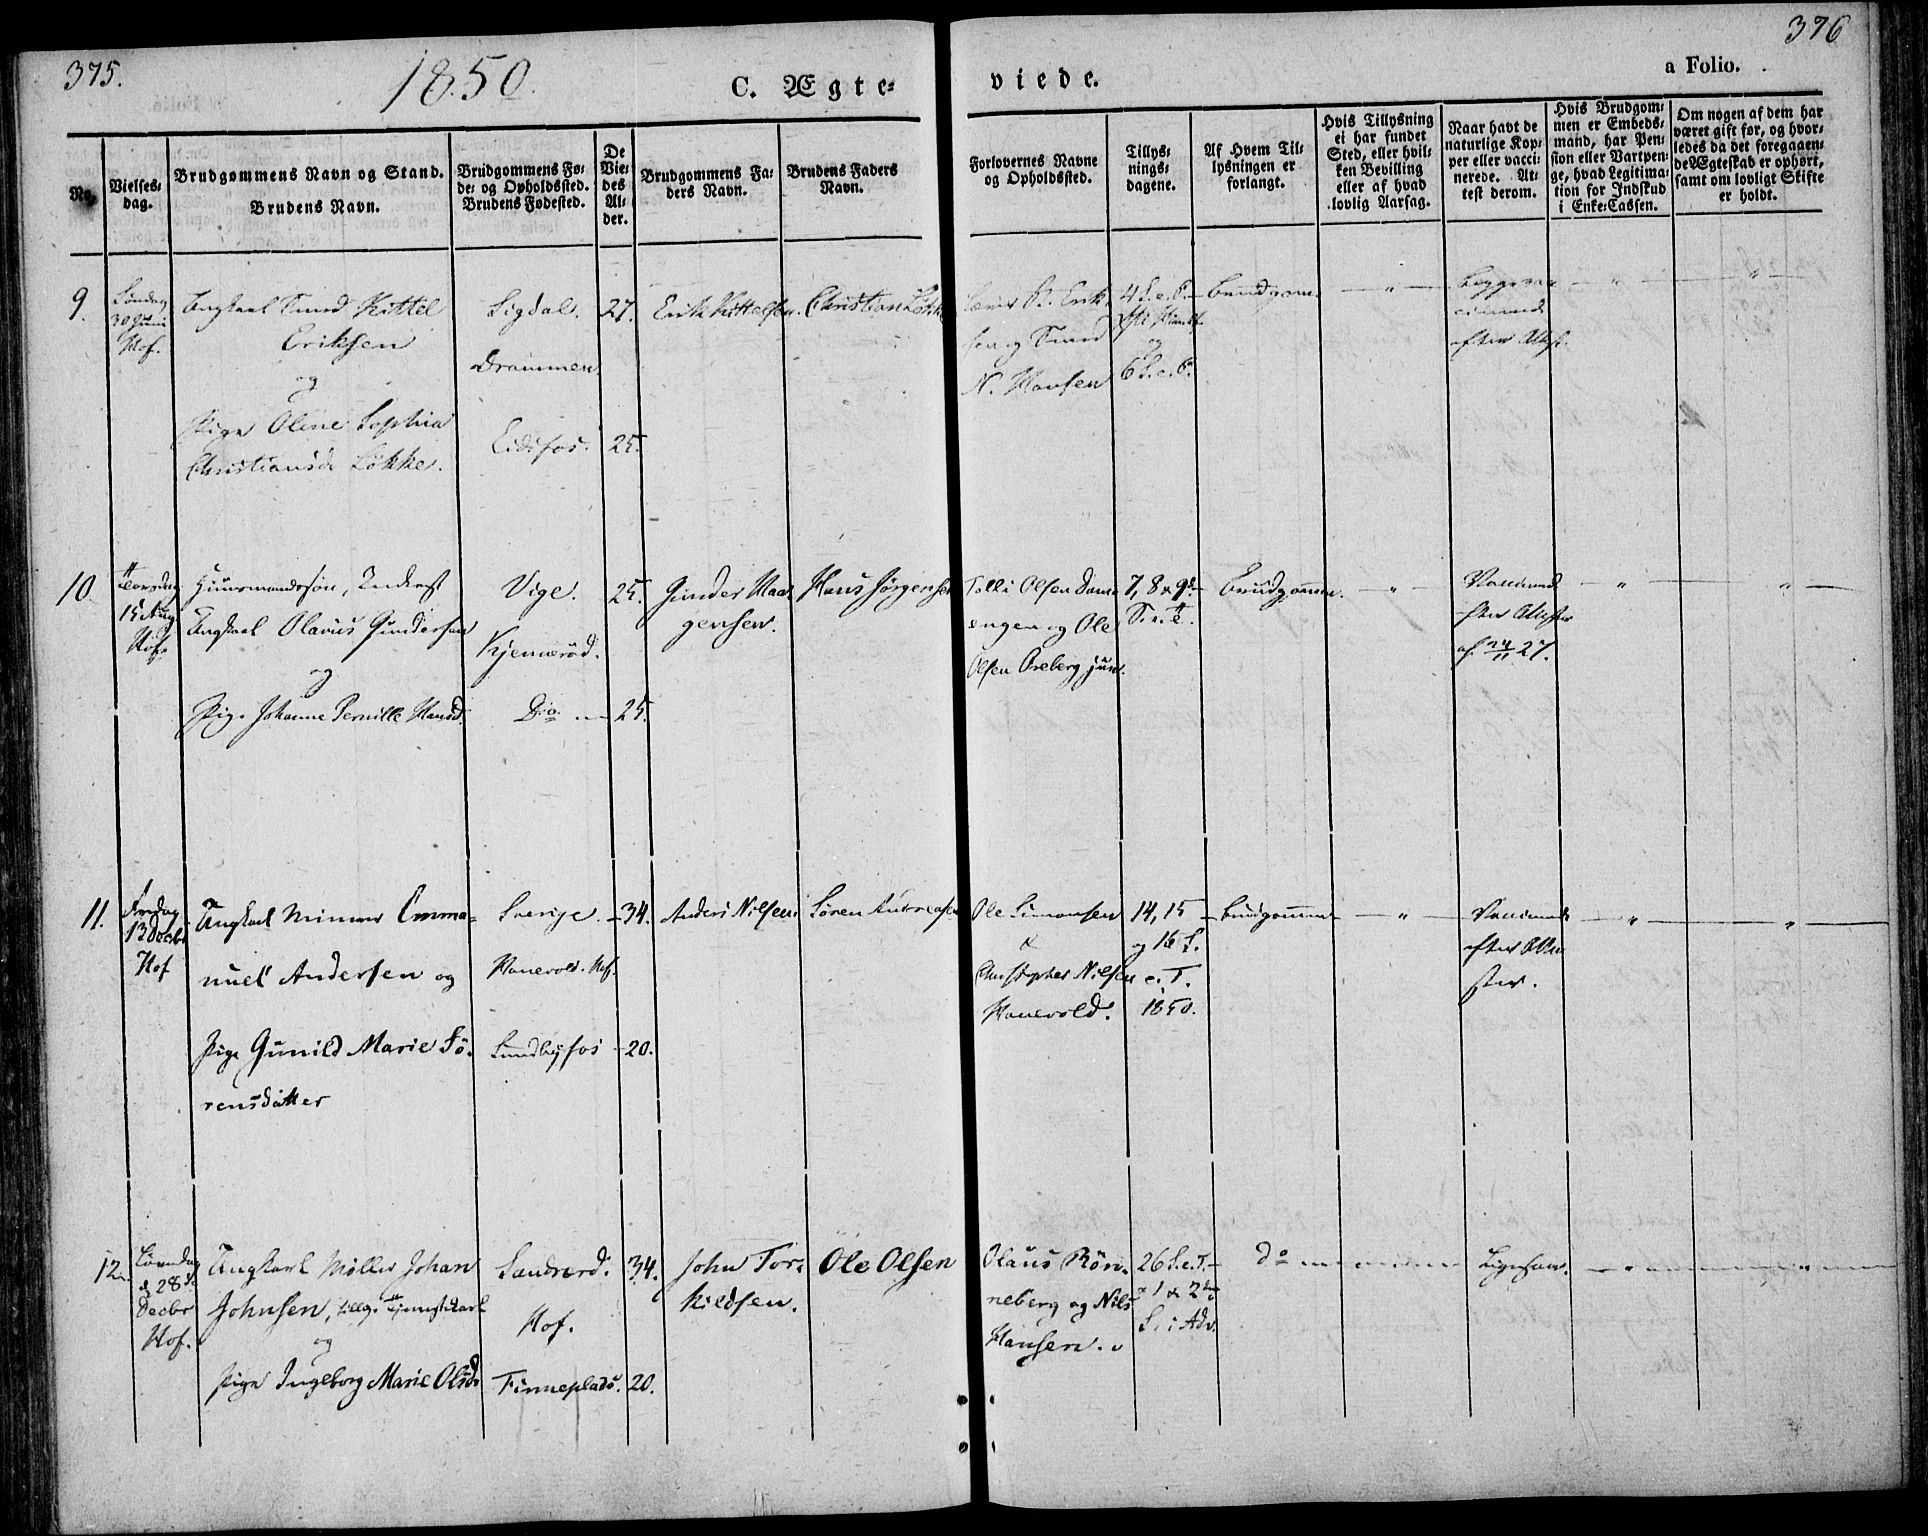 375.
1850.
C. Ægte-
viede.
a Folio.
376
No.
Vielses-
dag.
Brudgommens Navn og Stand.
Brudens Navn.
Brudgommens Fø-
de- og Opholdssted.
Brudens Fødested.
De
Vie-
des
Al-
der.
Brudgommens Fa-
ders Navn.
Brudens Faders
Navn.
Forlovernes Navne
og Opholdssted.
Tillys-
nings-
dagene.
Af Hvem Til-
lysningen er
forlangt.
Hvis Tillysning
ei har fundet
Sted, eller hvil-
ken Bevilling
eller af hvad
lovlig Aarsag.
Naar havt de
naturlige Kop-
per eller vacci-
nerede. At-
test derom.
Hvis Brudgom-
men er Embeds-
mand, har Pen-
sion eller Vartpen-
ge, hvad Legitima-
tion for Indskud
i Enke-Cassen.
Om nogen af dem har
været gift før, og hvor-
ledes da det foregaaen-
de Ægteskab er ophørt,
samt om lovligt Skifte
er holdt.
9.
Søndag
30 Juni
Hof.
Ungkarl Kittel
Eriksen
og
Pige Oline Sophia
Christiansd. Løkke.
Sigdal.
Drammen
Eidsfos.
27.
25.
Erik Kittelsen.
Christian Løkke
Erik-
sen og
N. Hansen
4 S. e. P.
og
6 S. e. P.
Brudgom.
efter Attest.
10.
Torsdag
15 Aug
Hof.
Huusmandssøn, Inderst
Ungkarl Olavus Gundersen
og
Pige Johanne Pernille Hansd.
Vige.
Kjennerød.
Do
25.
25.
Gunder Haa-
gensen.
Hans Jørgensen
Tolli Olsen Dam-
engen og Ole
Olsen Oreberg jun.
7, 8 & 9de
S. e. T.
Brudgommen.
Vaccinerede
efter Attester
af 24/11 27.
11.
Fredag
13 Decbr
Hof
Ungkarl Emma-
nuel Andersen og
Pige Gunild Marie Sø-
rensdatter
Sverige.
Hanevold. Hof.
Sundbyfos
34.
20.
Anders Nilsen
Søren Andreasen
Ole Simonsen
&
Christopher Nilsen
Hanevold.
14, 15
og 16 S.
e. T.
1850.
Brudgommen
Vaccinerede
efter Atte-
ster.
12.
Løverdag
d. 28de
Decbr
Hof.
Ungkarl Møller Johan
Johnsen, tillige Tjenestekarl
og
Pige Ingeborg Marie Olsdr
Sanderød.
Hof.
Finneplads.
34.
20.
John Tor-
kildsen.
Ole Olsen
Olaus Røn-
neberg og Nils
Hansen.
26 S. e. T.
& 1 & 2den
S. i Adv.
Do
Ligesaa.